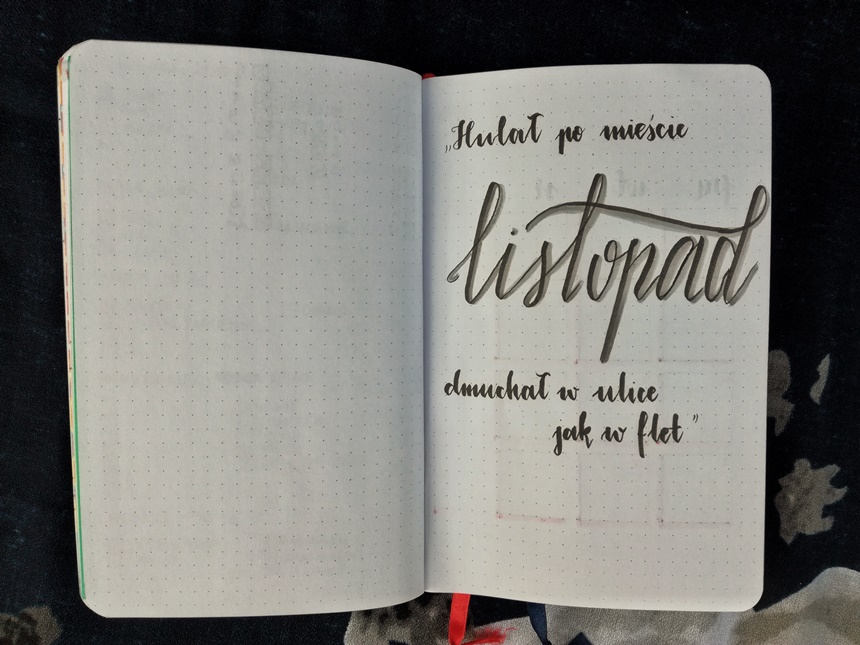 „Hulał po mieście
listopad
dmuchał w ulice
jak w flet”